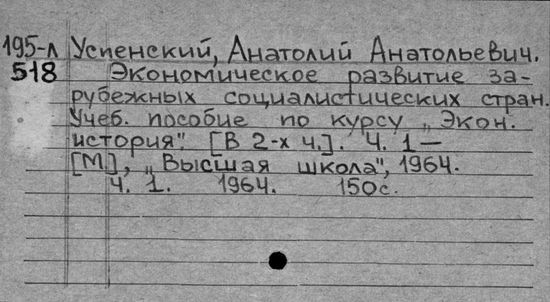 195-л Успенский, Анатолий Анатольевич.
518 Экономическое развитие за-
рубежных социалистических стран.
Учеб. пособие по курсу „Экон.
история". [В 2-х ч.]. Ч. 1—
[М], „Высшая школа", 1964.
Ч. 1. 1964. 150с.